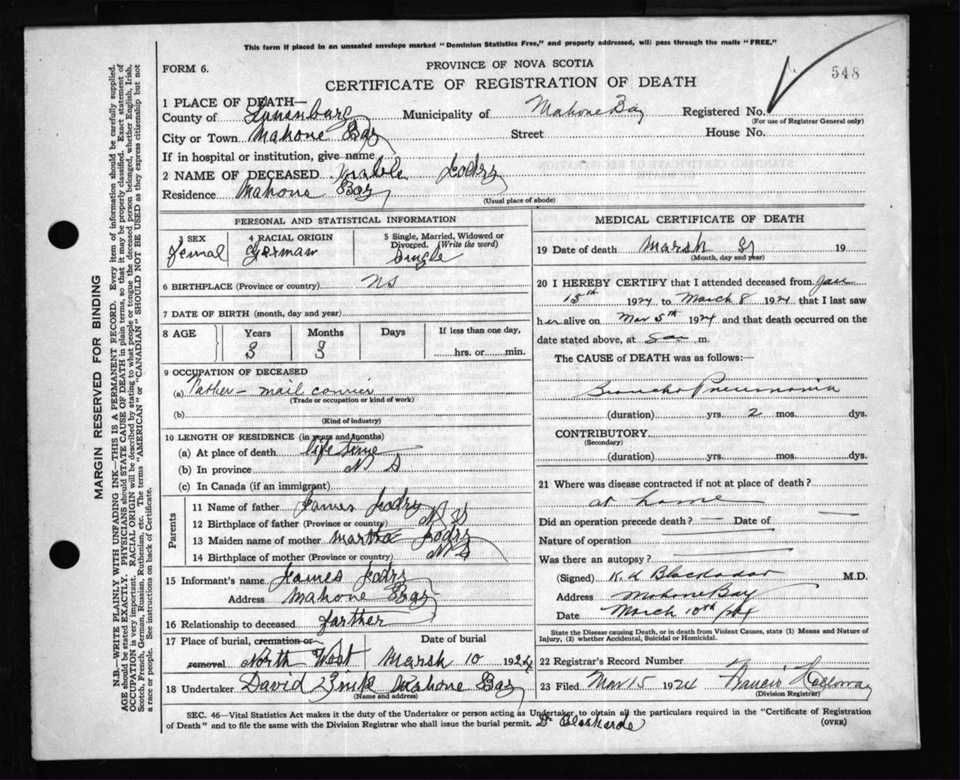 This form if placed in an unsealed envelope marked "Dominion Statistics Free," and properly addressed, will pass through the mails "FREE."
PROVINCE OF NOVA SCOTIA
FORM 6.
548
CERTIFICATE OF REGISTRATION OF DEATH
1 PLACE OF DEATH—
County of Lunenburg Municipality of Mahone Bay Registered No.
(For use of Registrar General only)
City or Town Mahone Bay Street House No.
If in hospital or institution, give name
2 NAME OF DECEASED
Residence Mahone Bay
(Usual place of abode)
PERSONAL AND STATISTICAL INFORMATION
3 SEX 4 RACIAL ORIGIN 5 Single, Married, Widowed or Divorced. (Write the word)
Femal German Single
6 BIRTHPLACE (Province or country) NS
7 DATE OF BIRTH (month, day and year)
8 AGE Years Months Days If less than one day,
3 3 hrs. or min.
9 OCCUPATION OF DECEASED
(a) Father - mail courier
(Trade or occupation or kind of work)
(b)
(Kind of industry)
10 LENGTH OF RESIDENCE (in years and months)
(a) At place of death life time
(b) In province N S
(c) In Canada (if an immigrant)
Parents
11 Name of father James
12 Birthplace of father (Province or country) N S
13 Maiden name of mother Martha
14 Birthplace of mother (Province or country) N S
15 Informant's name James
Address Mahone Bay
16 Relationship to deceased farther
17 Place of burial, cremation or removal Date of burial
North West Marsh 10 1924
18 Undertaker David Zink Mahone Bay
(Name and address)
MEDICAL CERTIFICATE OF DEATH
19 Date of death Marsh 19
(Month, day and year)
20 I HEREBY CERTIFY that I attended deceased from Jan
15th 1924 to March 8 1924 that I last saw
her alive on Mar 5th 1924 and that death occurred on the
date stated above, at m.
The CAUSE OF DEATH was as follows:
Broncho Pneumonia
(duration) yrs. 2 mos. dys.
CONTRIBUTORY
(Secondary)
(duration) yrs. mos. dys.
21 Where was disease contracted if not at place of death?
at home
Did an operation precede death? — Date of
Nature of operation
Was there an autopsy?
(Signed) Blackadar M.D.
Address Mahone Bay
Date March 10th /24
State the Disease causing Death, or in death from Violent Causes, state (1) Means and Nature of
Injury, (2) whether Accidental, Suicidal or Homicidal.
22 Registrar's Record Number
23 Filed Mar 15 1924 Holloway
(Division Registrar)
SEC. 46—Vital Statistics Act makes it the duty of the Undertaker or person acting as Undertaker to obtain all the particulars required in the "Certificate of Registration
of Death" and to file the same with the Division Registrar who shall issue the burial permit.
(OVER)
MARGIN RESERVED FOR BINDING
N.B.—WRITE PLAINLY WITH UNFADING INK—THIS IS A PERMANENT RECORD. Every item of information should be carefully supplied.
AGE should be stated EXACTLY. PHYSICIANS should STATE CAUSE OF DEATH in plain terms, so that it may be properly classified. Exact statement of
OCCUPATION is very important. RACIAL ORIGIN will be described by stating to what people or tongue the deceased person belonged, whether English, Irish,
Scotch, French, German, Russian, Ruthenian, etc. The terms "AMERICAN" or "CANADIAN" SHOULD NOT BE USED as they express citizenship but not
a race or people. See instructions on back of Certificate.